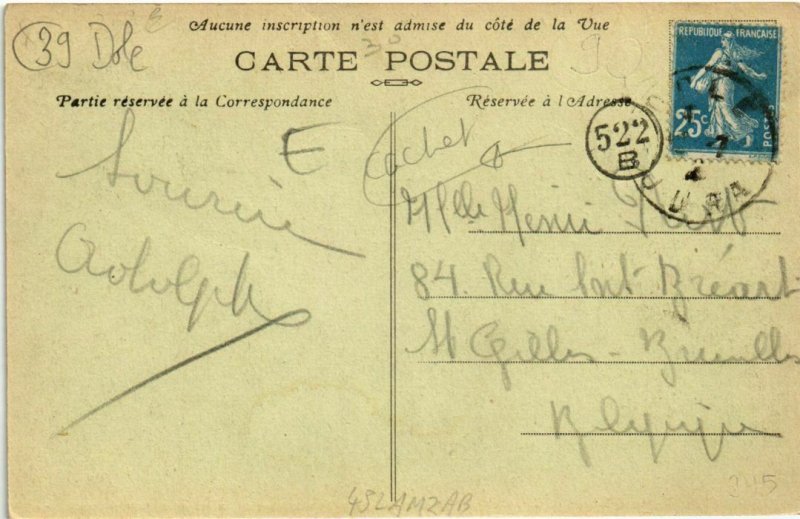 39 Dole
Aucune inscription n'est admise du côté de la Vue
CARTE POSTALE
Partie réservée à la Correspondance
Réservée à l'Adresse
REPUBLIQUE FRANÇAISE
25c
POSTES
DOLE
JURA
522
B
E
cachet
Adolph
Mlle
84. Rue Bréart
St Gilles - Bruxelles
Belgique
4SLAMZAB